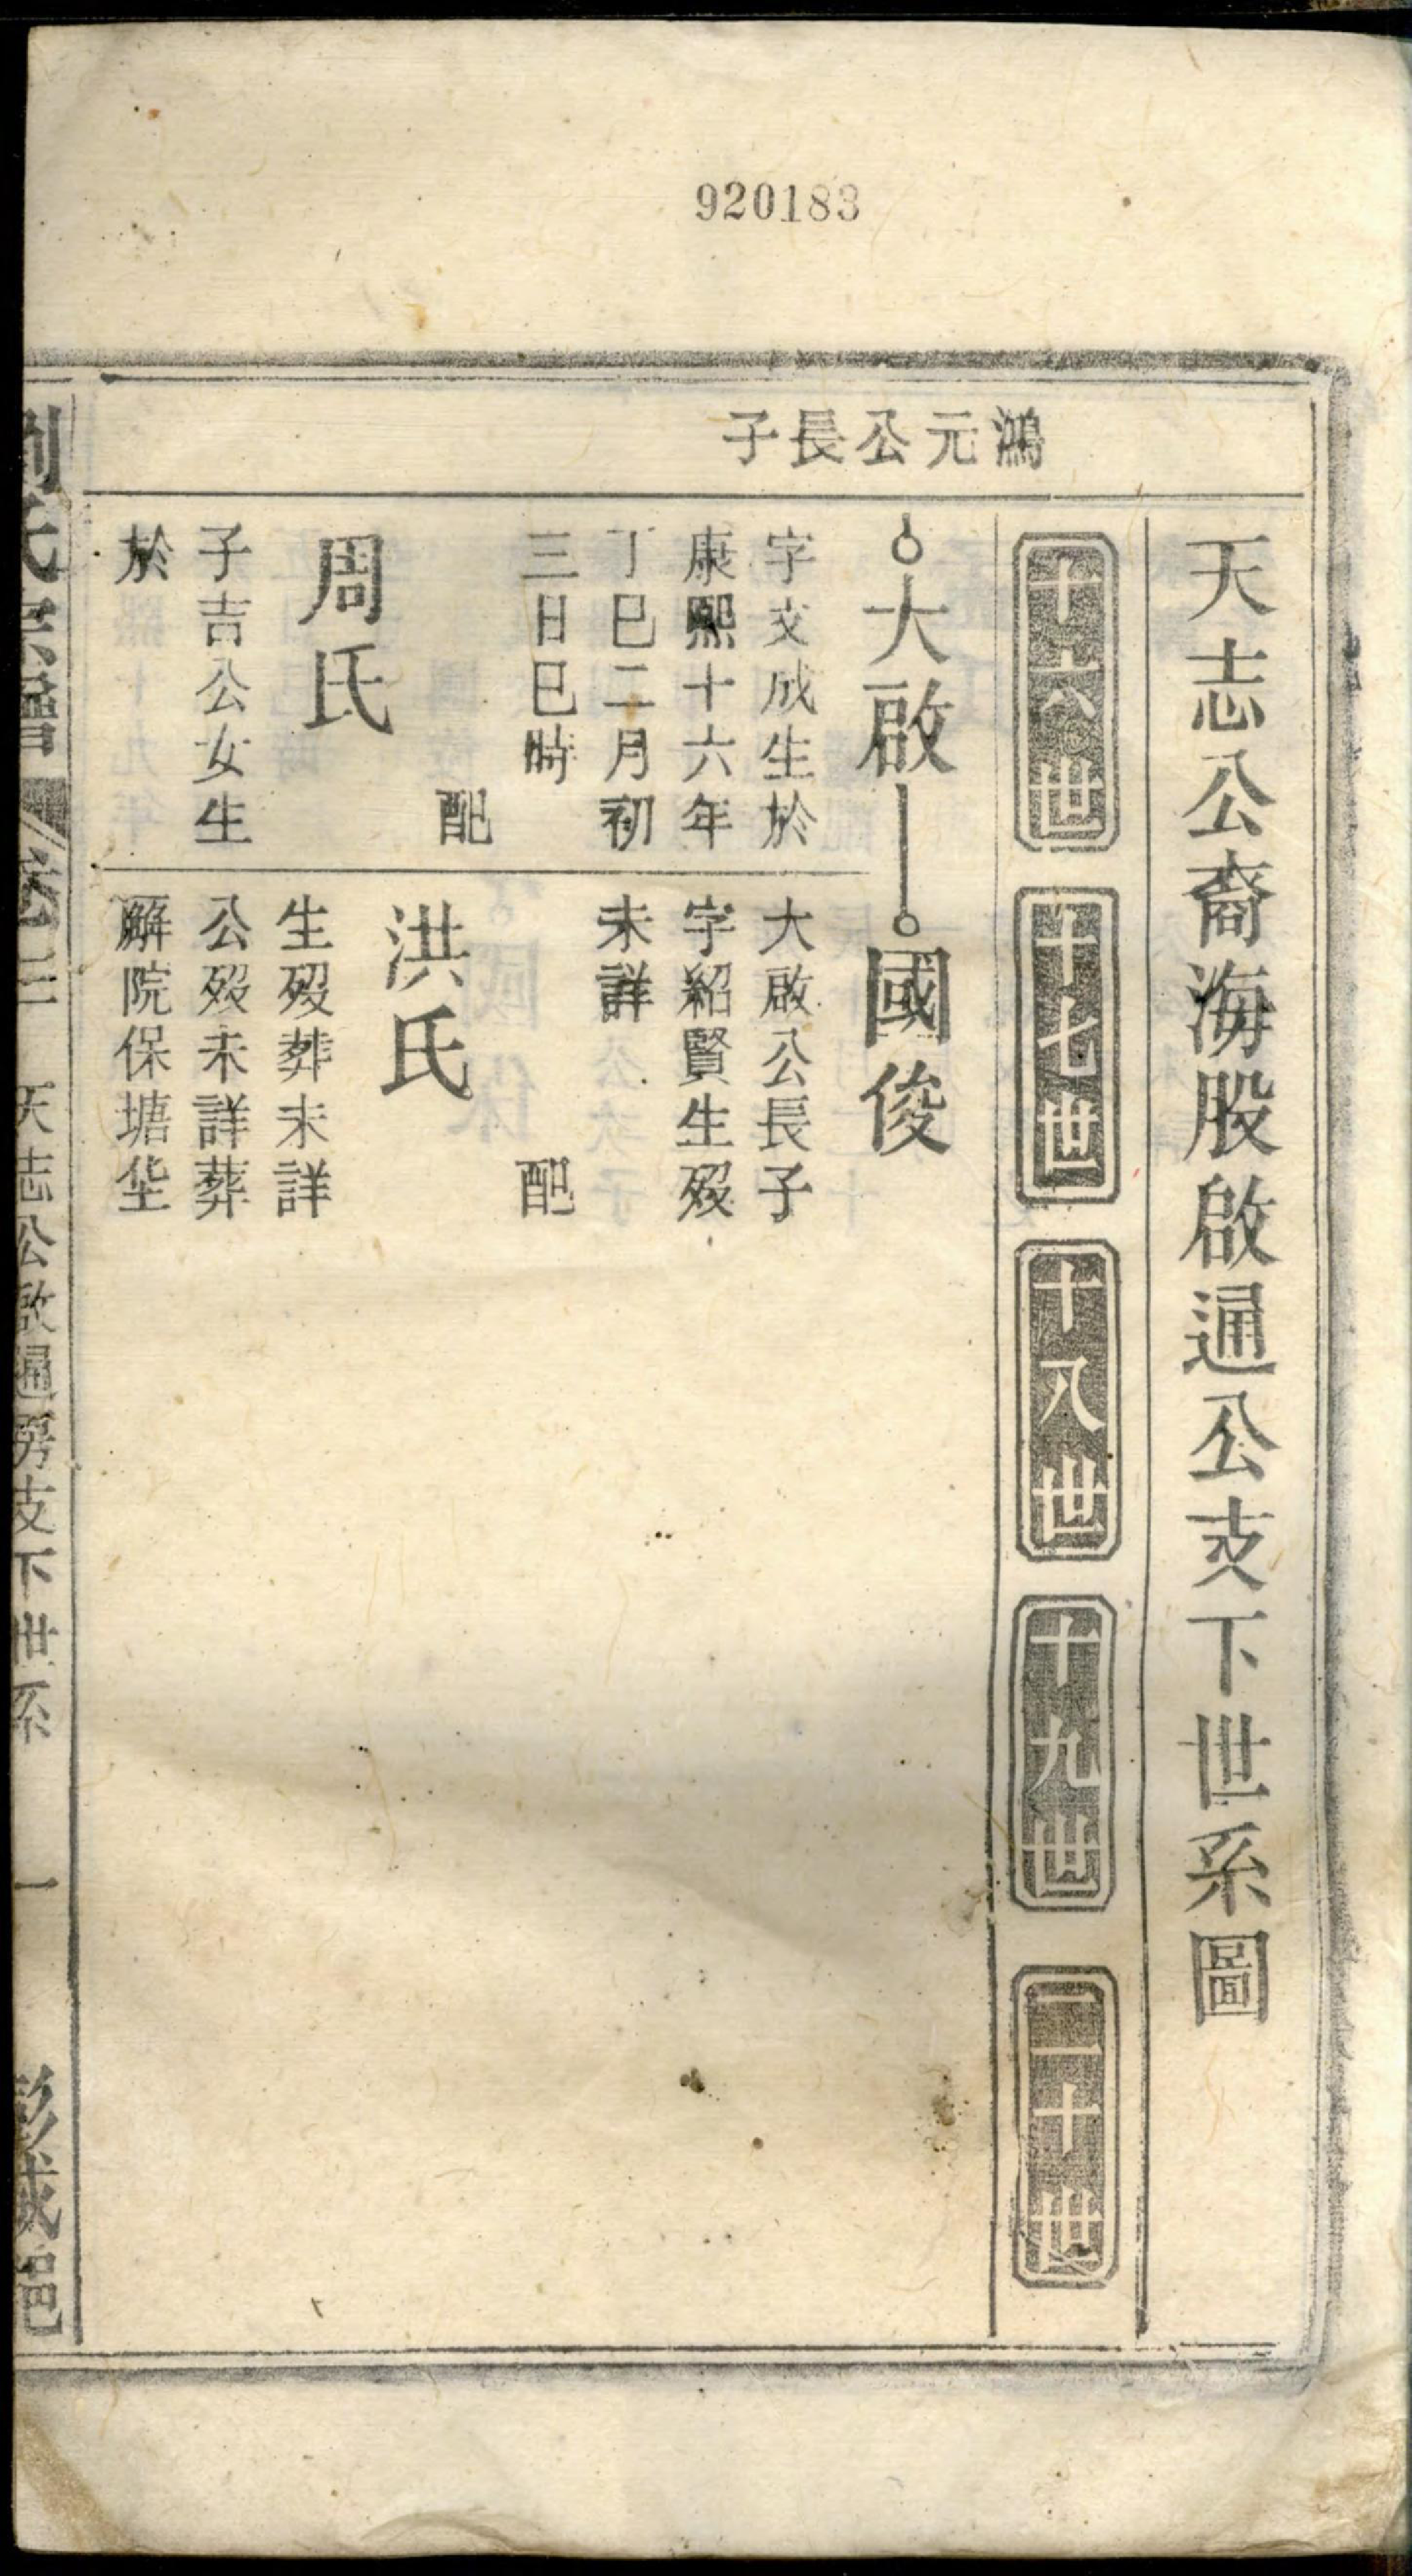 920183
天志公裔海股啟通公支下世系圖
十六世
十七世
十八世
十九世
二十世
鴻元公長子
大啟
國俊
字文成生於
康熙十六年
丁巳二月初
三日巳時
配
周氏
子吉公女生
於
大啟公長子
字紹賢生歿
未詳
配
洪氏
生歿葬未詳
公歿未詳葬
解院保塘坐
劉氏宗譜
卷三
天志公啟通房支下世系
一
彭城邑